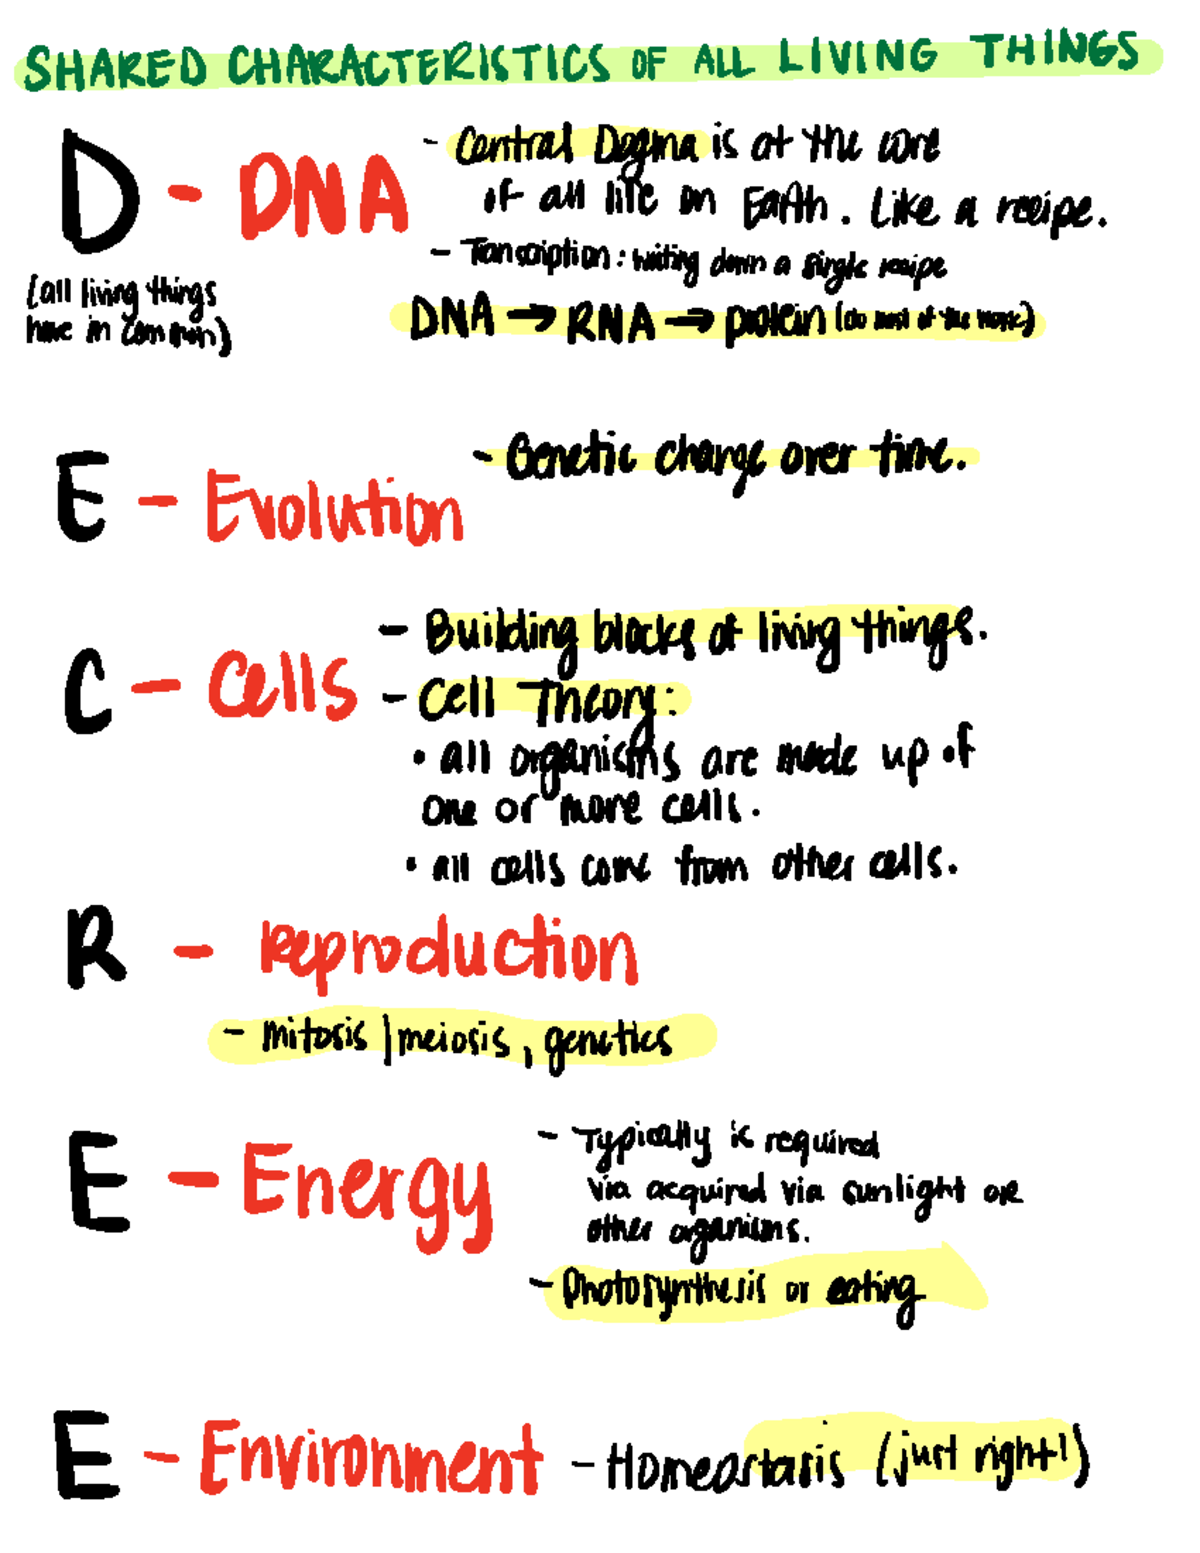 SHARED CHARACTERISTICS OF ALL LIVING THINGS
D - DNA
- Central Dogma is at the core
of all life on Earth. Like a recipe.
- Transcription: writing down a single recipe
(all living things
have in common)
DNA → RNA → protein (do most of the work)
E - Evolution
- Genetic change over time.
C - Cells
- Building blocks of living things.
- Cell Theory:
• all organisms are made up of
one or more cells.
• all cells come from other cells.
R - Reproduction
- mitosis | meiosis, genetics
E - Energy
- Typically is required
via acquired via sunlight or
other organisms.
- Photosynthesis or eating
E - Environment - Homeostasis (just right!)